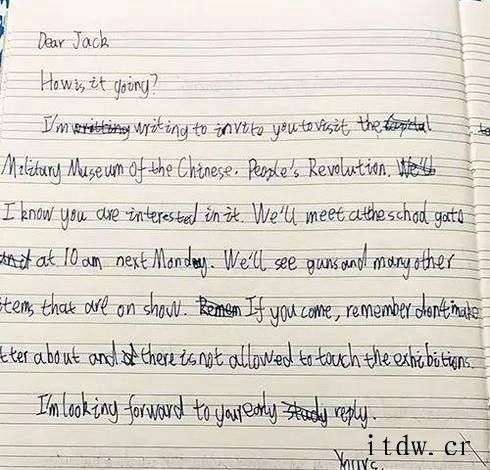 Dear Jack
How is it going?
I'm writing to invite you to visit the
Military Museum of the Chinese. People's Revolution. We'll
I know you are interested in it. We'll meet at the school gate
at 10 am next Monday. We'll see guns and many other
items that are on show. If you come, remember don't make
tter about and there is not allowed to touch the exhibitions.
I'm looking forward to your early reply.
Yours.
itdw.cr